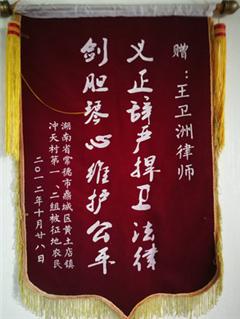 赠：王卫洲律师
义正辞严捍卫法律
剑胆琴心维护公平
湖南省常德市鼎城区黄土店镇
冲天村第一、二组被征地农民
二〇一二年十月廿八日